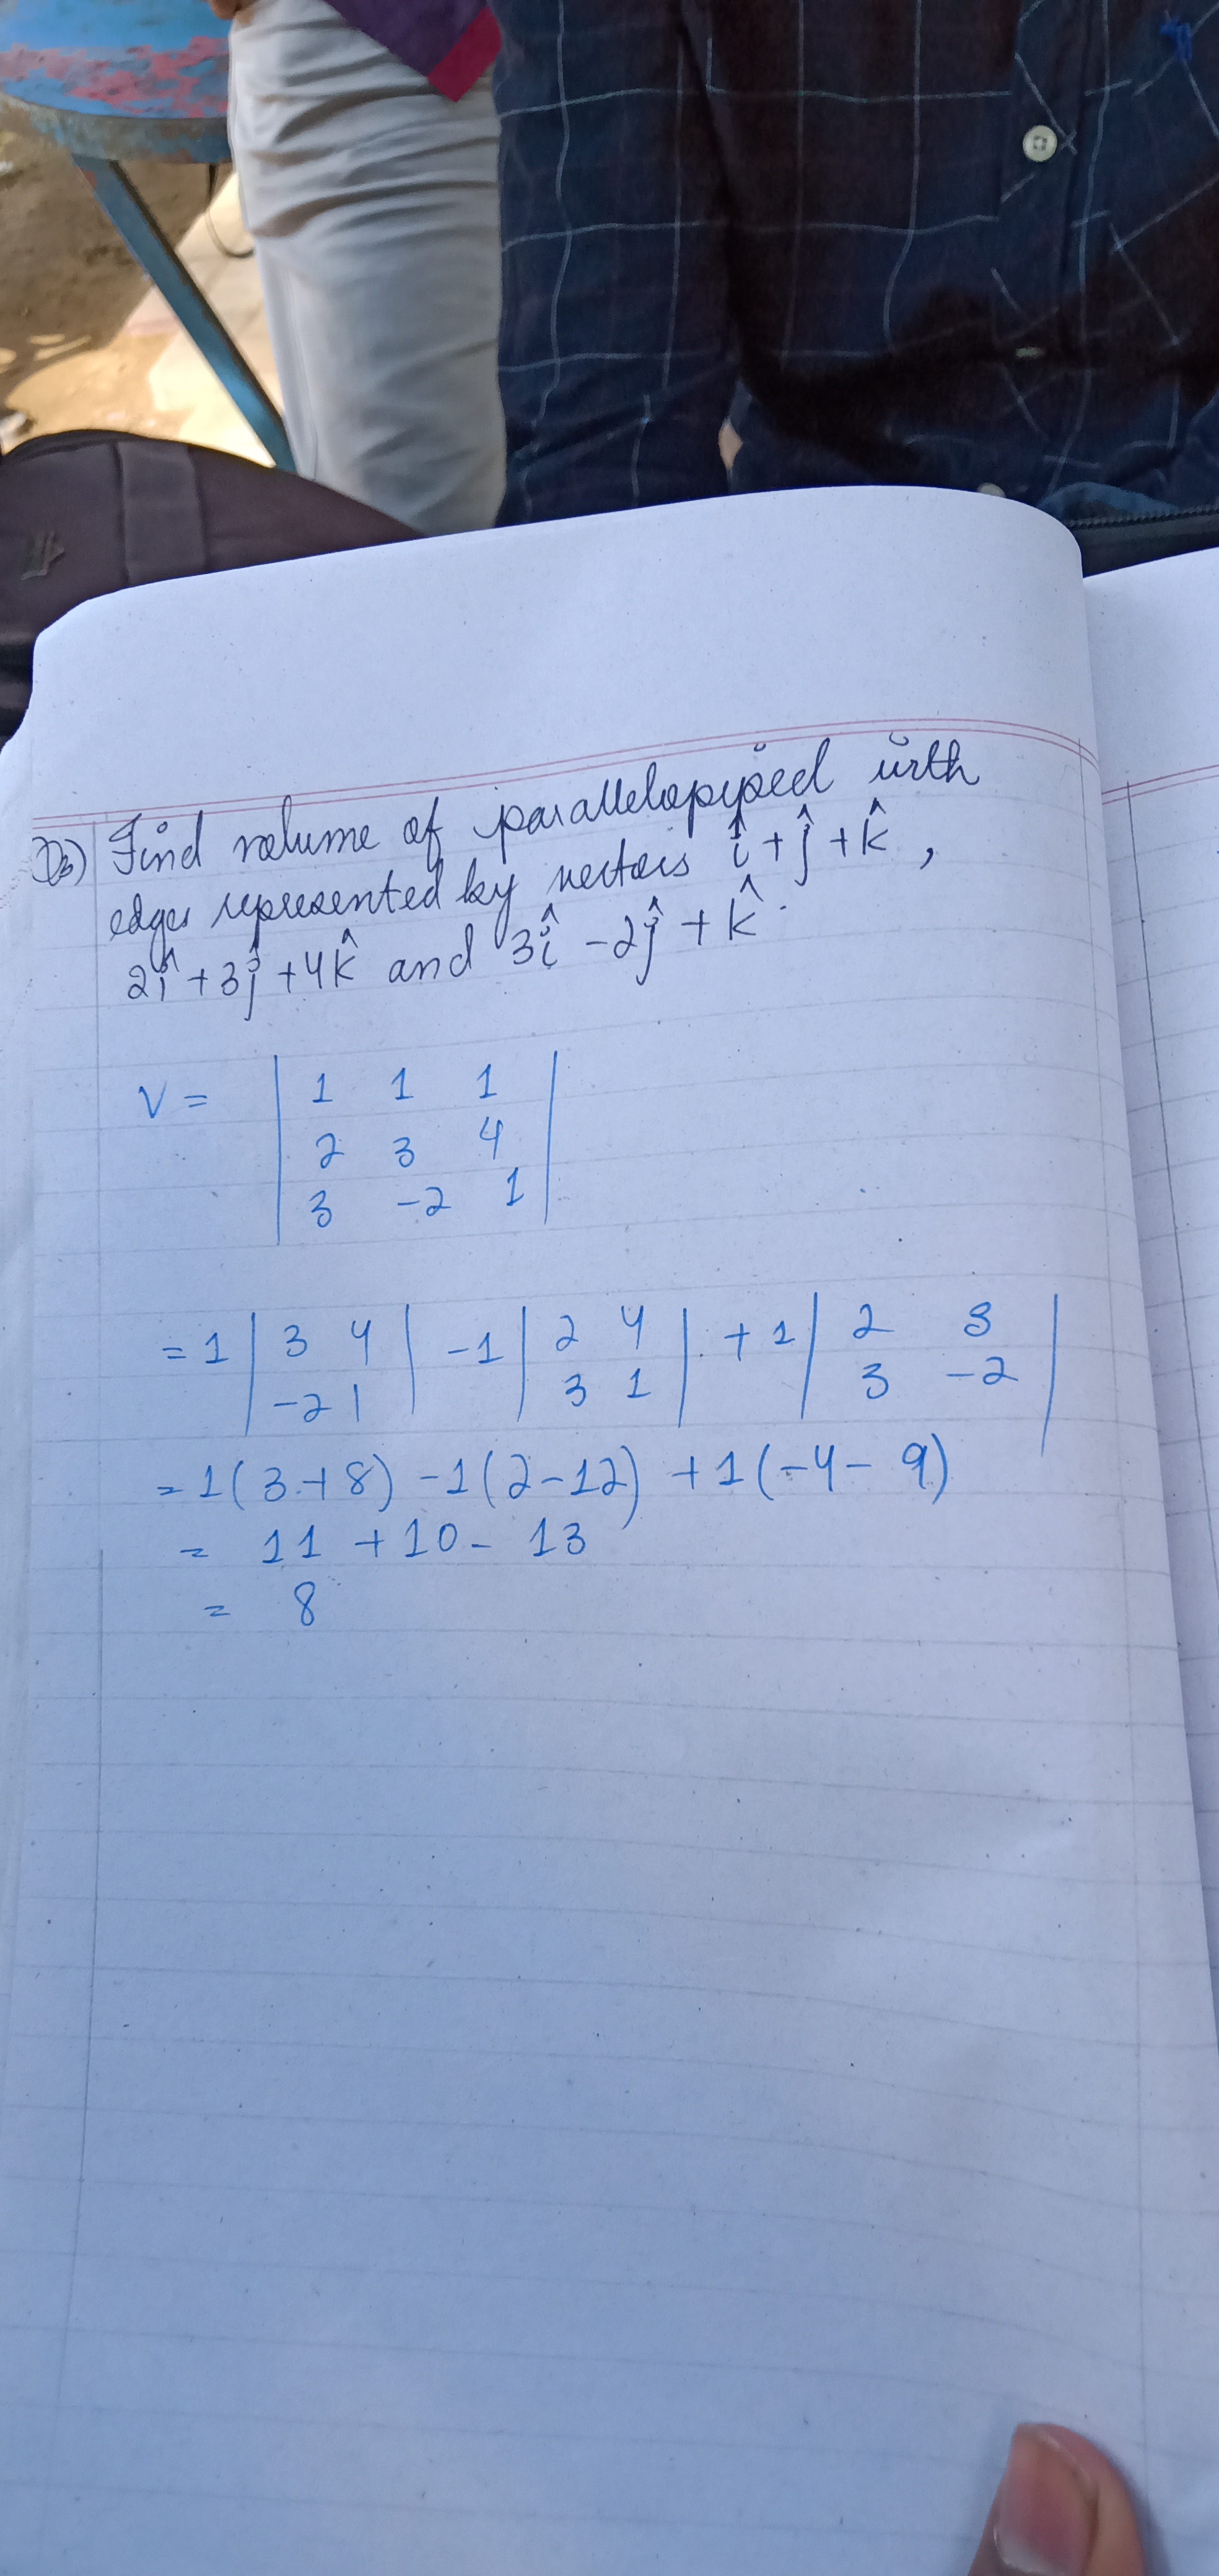 Q3) Find volume of parallelopiped with
edges represented by vectors î + ĵ + k̂ ,
2î + 3ĵ + 4k̂ and 3î - 2ĵ + k̂ .
V = | 1 1 1 |
| 2 3 4 |
| 3 -2 1 |
= 1 | 3 4 | -1 | 2 4 | + 1 | 2 3 |
| -2 1 | | 3 1 | | 3 -2 |
= 1 ( 3 + 8 ) - 1 ( 2 - 12 ) + 1 ( -4 - 9 )
= 11 + 10 - 13
= 8